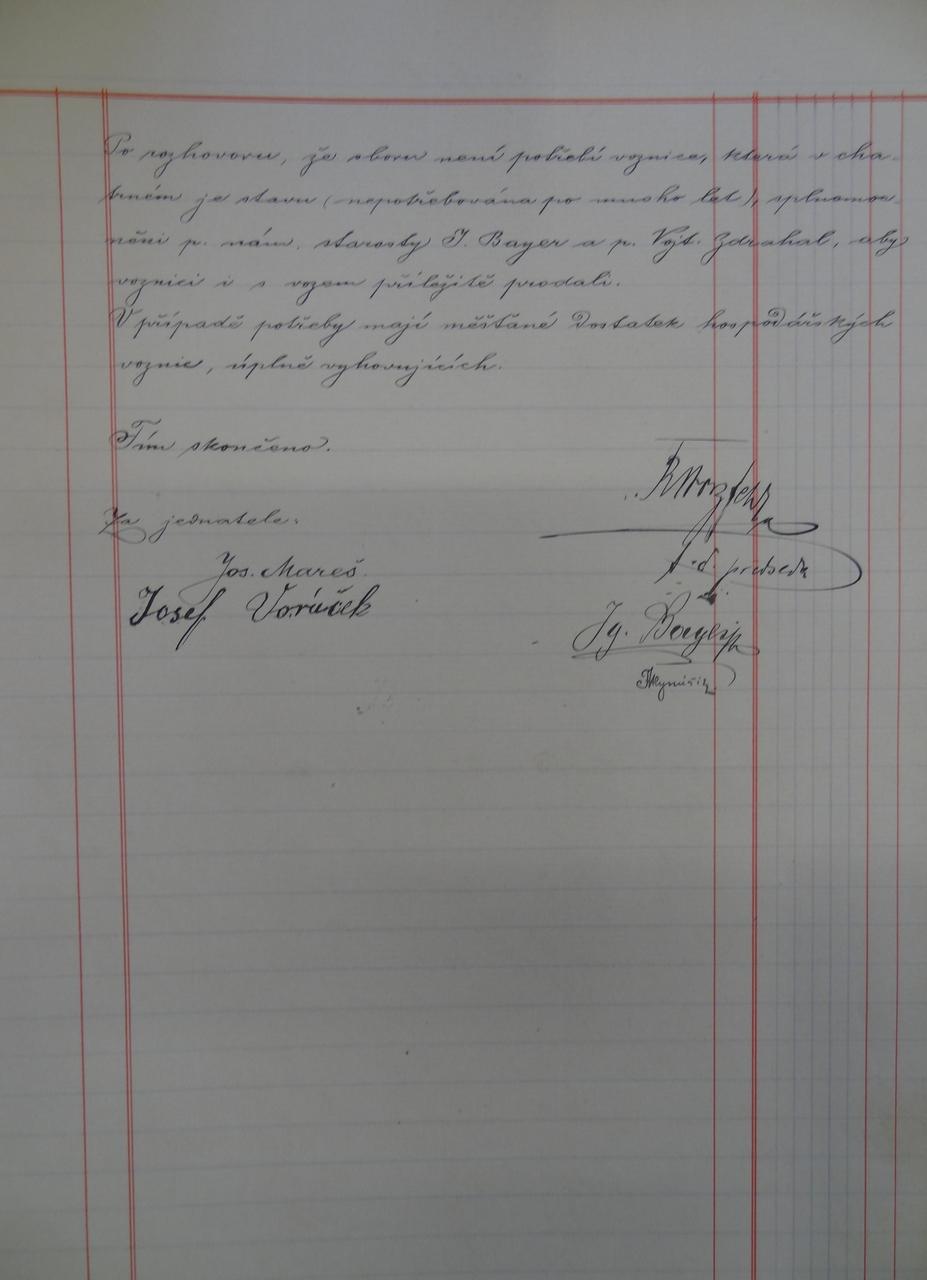 Po rozhovoru, že sboru není potřebí voznice, která v cha-
trném je stavu (nepotřebována po mnoho let), splnomoc-
něni p. nám. starosty I. Bayer a p. Vojt. Zdrahal, aby
voznici i s vozem příležitě prodali.
V případě potřeby mají měšťané dostatek hospodářských
voznic, úplně vyhovujících.
Tím skončeno.
Za jednatele:
t. č. předseda
Jos. Mareš.
Josef Voráček
Ig. Bayer